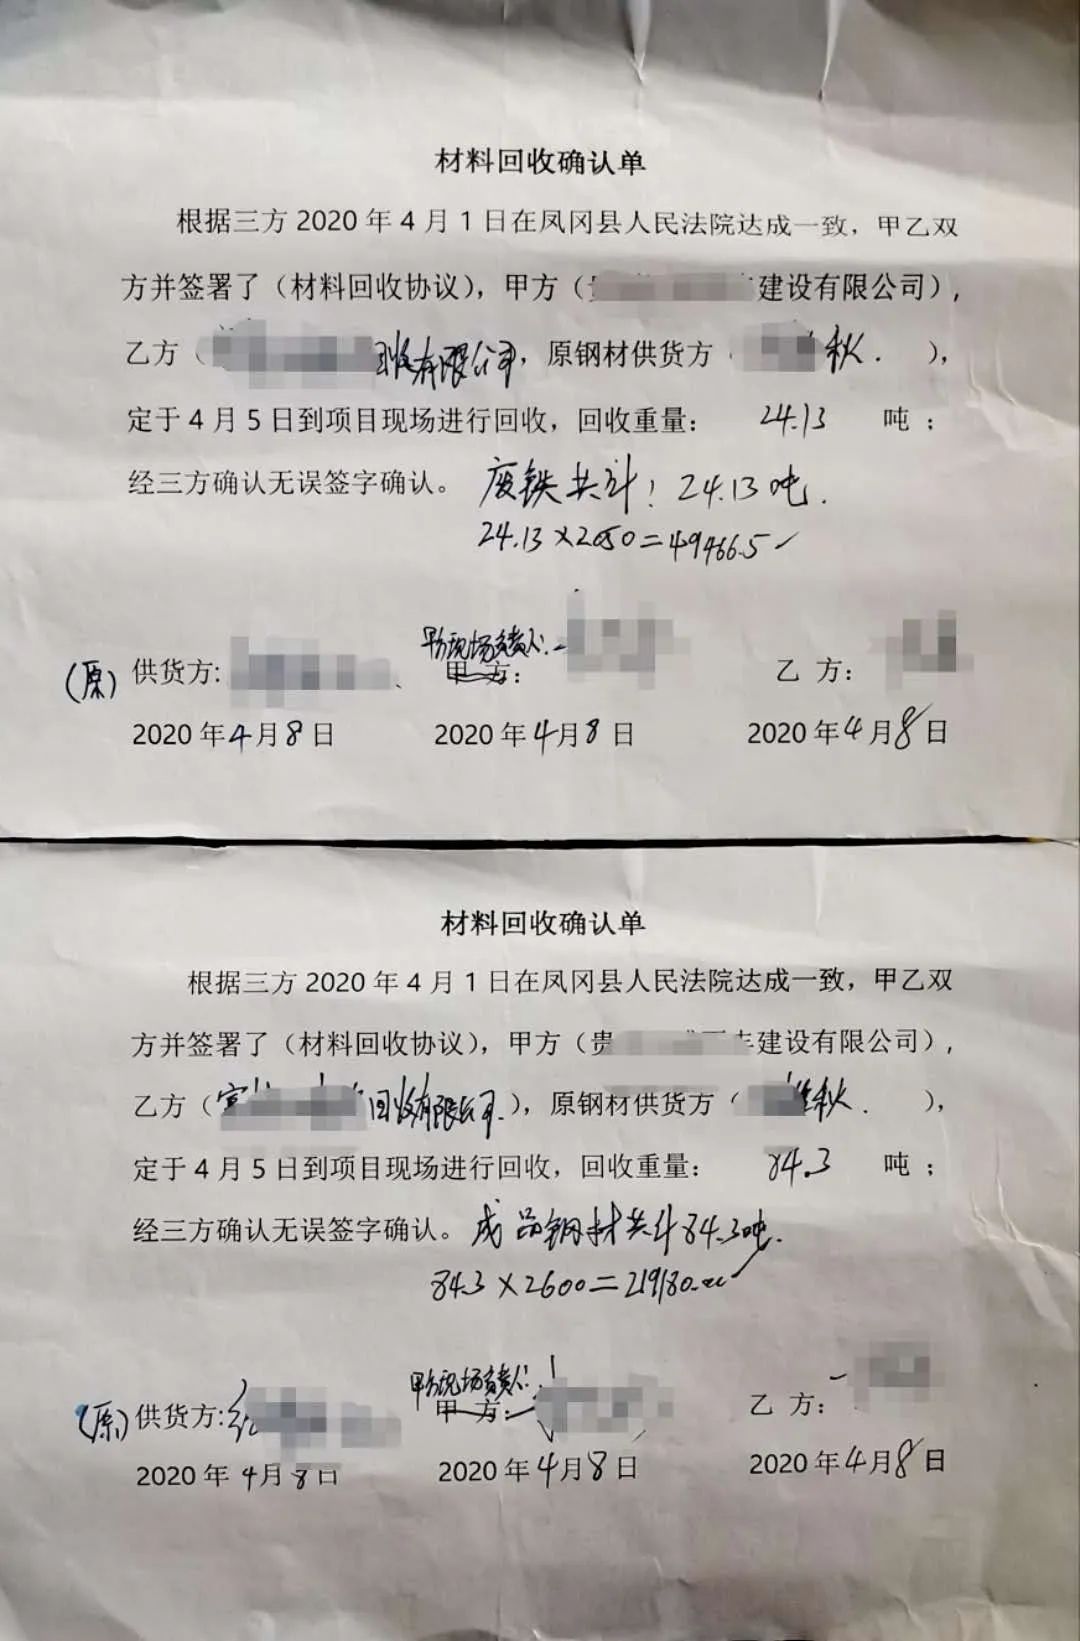 材料回收确认单
根据三方 2020 年 4 月 1 日在凤冈县人民法院达成一致，甲乙双
方并签署了（材料回收协议），甲方（ 建设有限公司），
乙方（ 回收有限公司，原钢材供货方 秋. ），
定于 4 月 5 日到项目现场进行回收，回收重量： 24.13 吨；
经三方确认无误签字确认。 废铁共计：24.13吨.
24.13×2050=49466.5
甲方现场负责人：
（原）供货方: 甲 方： 乙 方：
2020 年4月8日 2020 年4月8日 2020 年4月8日
材料回收确认单
根据三方 2020 年 4 月 1 日在凤冈县人民法院达成一致，甲乙双
方并签署了（材料回收协议），甲方（贵 建设有限公司），
乙方（ 回收有限公司.），原钢材供货方（ 秋. ），
定于 4 月 5 日到项目现场进行回收，回收重量： 84.3 吨；
经三方确认无误签字确认。 成品钢材共计84.3吨.
84.3×2600=219180.00
甲方现场负责人：
（原）供货方: 甲 方： 乙 方：
2020 年4月8日 2020 年4月8日 2020 年4月8日